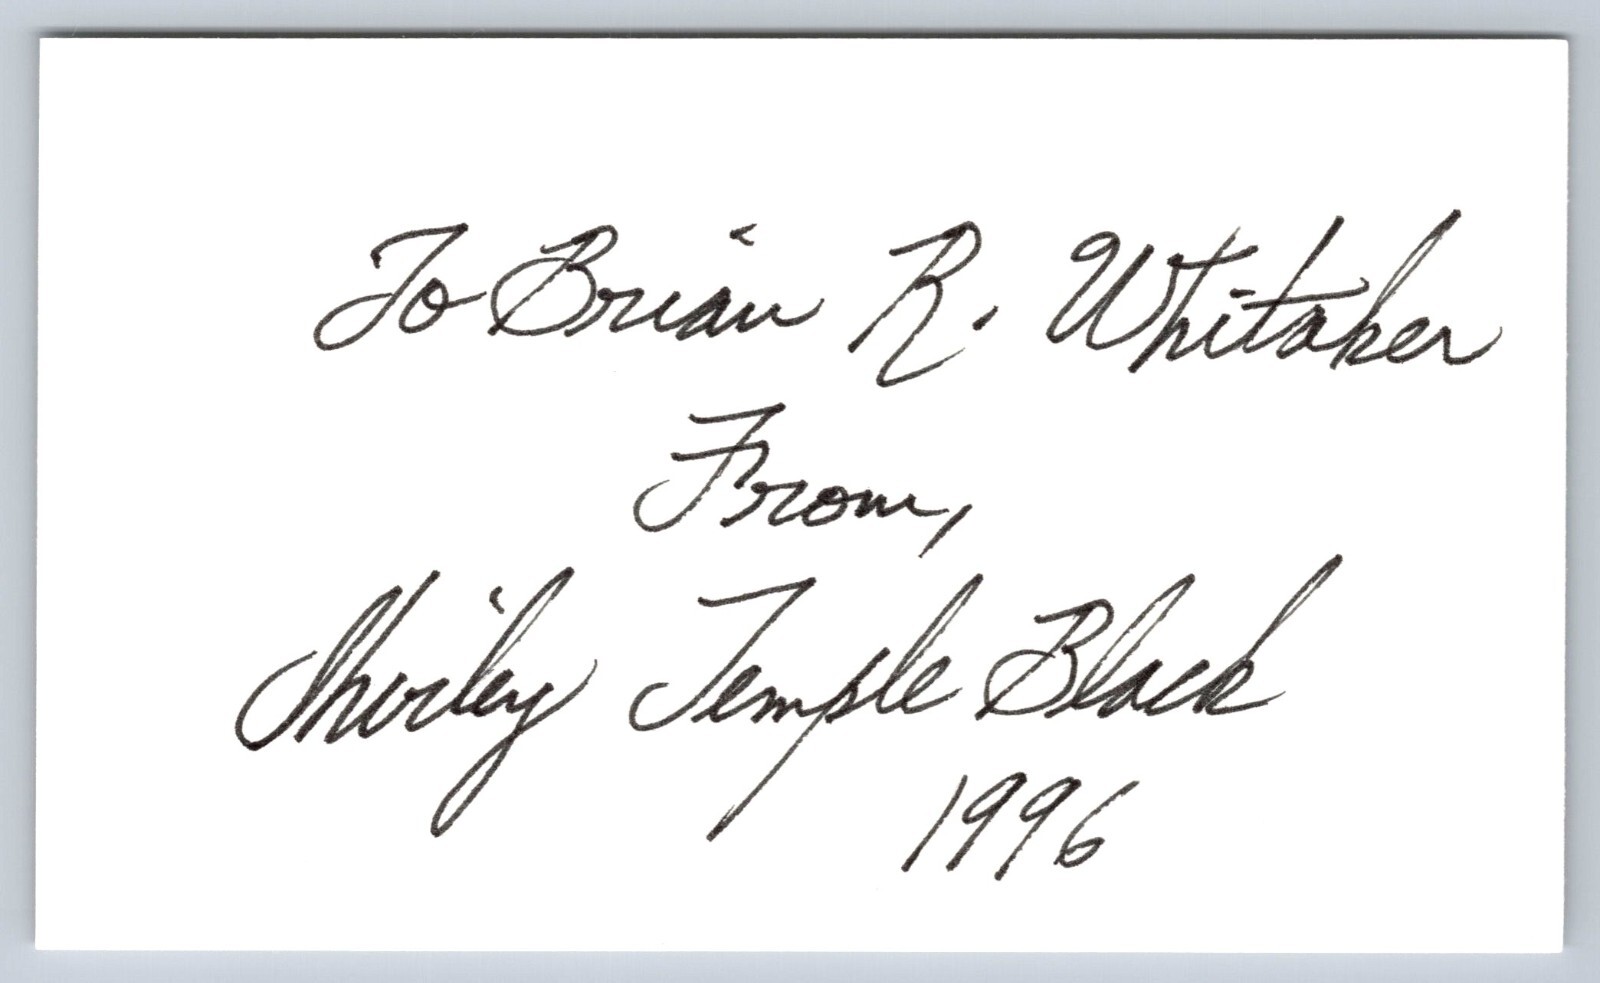 To Brian R. Whitaker
From,
Shirley Temple Black
1996